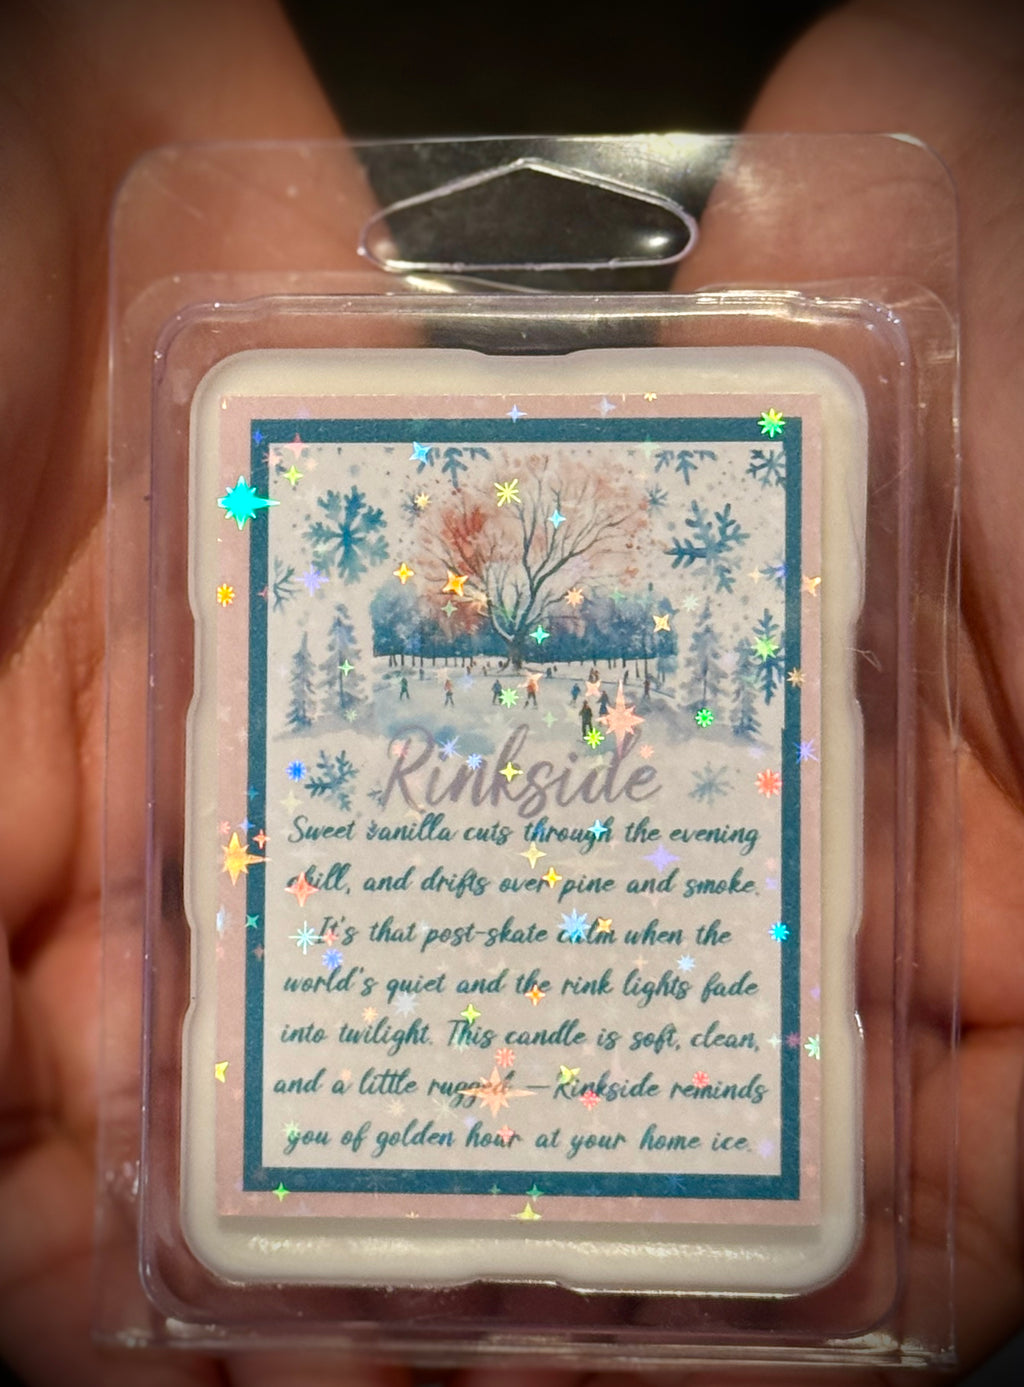 Rinkside
Sweet vanilla cuts through the evening
chill, and drifts over pine and smoke.
It's that post-skate calm when the
world's quiet and the rink lights fade
into twilight. This candle is soft, clean,
and a little rugged —Rinkside reminds
you of golden hour at your home ice.